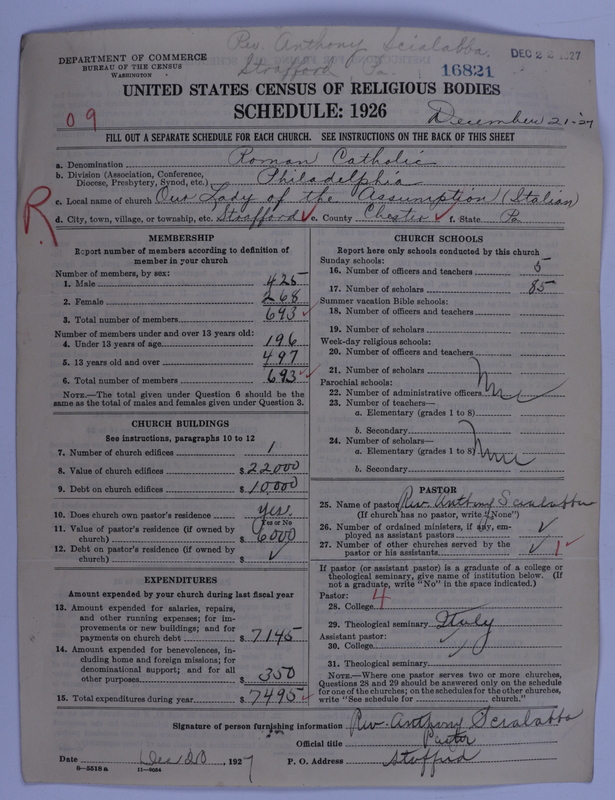 Rev. Anthony Scialabba.
Strafford, Pa.
DEPARTMENT OF COMMERCE
BUREAU OF THE CENSUS
WASHINGTON
DEC 2 27
16821
UNITED STATES CENSUS OF RELIGIOUS BODIES
SCHEDULE: 1926
09
December 21-27
FILL OUT A SEPARATE SCHEDULE FOR EACH CHURCH. SEE INSTRUCTIONS ON THE BACK OF THIS SHEET
a. Denomination Roman Catholic
b. Division (Association, Conference, Diocese, Presbytery, Synod, etc.) Philadelphia
c. Local name of church Our Lady of the Assumption (Italian)
d. City, town, village, or township, etc. Strafford ✓ e. County Chester ✓ f. State Pa
R.
MEMBERSHIP
Report number of members according to definition of
member in your church
Number of members, by sex:
1. Male 425
2. Female 268
3. Total number of members 693 ✓
Number of members under and over 13 years old:
4. Under 13 years of age 196
5. 13 years old and over 497
6. Total number of members 693 ✓
NOTE.—The total given under Question 6 should be
same as the total of males and females given under Question 3.
CHURCH BUILDINGS
See instructions, paragraphs 10 to 12
7. Number of church edifices 1
8. Value of church edifices $22000
9. Debt on church edifices $10,000
10. Does church own pastor's residence yes.
(Yes or No)
11. Value of pastor's residence (if owned by
church) $6000
12. Debt on pastor's residence (if owned by
church) $ ✓
EXPENDITURES
Amount expended by your church during last fiscal year
13. Amount expended for salaries, repairs,
and other running expenses; for im-
provements or new buildings; and for
payments on church debt $7145
14. Amount expended for benevolences, in-
cluding home and foreign missions; for
denominational support; and for all
other purposes $350
15. Total expenditures during year $7495 ✓
CHURCH SCHOOLS
Report here only schools conducted by this church
Sunday schools:
16. Number of officers and teachers 5
17. Number of scholars 85
Summer vacation Bible schools:
18. Number of officers and teachers
19. Number of scholars
Week-day religious schools:
20. Number of officers and teachers
21. Number of scholars
Parochial schools:
22. Number of administrative officers
23. Number of teachers—
a. Elementary (grades 1 to 8)
b. Secondary
24. Number of scholars—
a. Elementary (grades 1 to 8)
b. Secondary
PASTOR
25. Name of pastor Rev. Anthony Scialabba
(If church has no pastor, write "None")
26. Number of ordained ministers, if any, em-
ployed as assistant pastors ✓
27. Number of other churches served by the
pastor or his assistants ✓ 1 ✓
If pastor (or assistant pastor) is a graduate of a college or
theological seminary, give name of institution below. (If
not a graduate, write "No" in the space indicated.)
Pastor:
28. College 4
29. Theological seminary Italy
Assistant pastor:
30. College
31. Theological seminary
NOTE.—Where one pastor serves two or more churches,
Questions 28 and 29 should be answered only on the schedule
for one of the churches; on the schedules for the other churches,
write "See schedule for church."
Signature of person furnishing information Rev. Anthony Scialabba
Official title Pastor
Date Dec 20, 1927 P. O. Address Strafford
8—5518a 11—9064